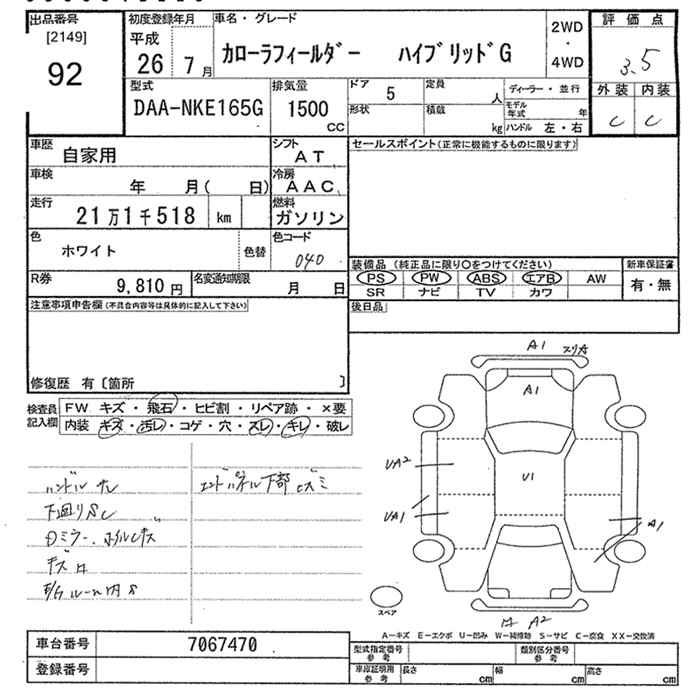 出品番号
[2149]
92
初度登録年月
平成
26 7月
車名・グレード
カローラフィールダー ハイブリッドG
2WD
・
4WD
評価点
3.5
外装 内装
C C
型式
DAA-NKE165G
排気量
1500
CC
ドア 5
形状
定員 人
積載 kg
ディーラー・並行
モデル年式 年
ハンドル 左・右
車歴 自家用
シフト AT
セールスポイント(正常に機能するものに限ります)
車検 年 月( 日)
冷房 AAC
走行 21万1千518 km
燃料 ガソリン
色 ホワイト 色替
色コード 040
装備品 (純正品に限り○をつけてください)
新車保証書
PS PW ABS エアB AW
有・無
SR ナビ TV カワ
R券 9,810円
名変通知期限 月 日
注意事項申告欄(不具合内容等は具体的に記入して下さい)
後日品
修復歴 有〔箇所 〕
検査員記入欄
FW キズ・飛石・ヒビ割・リペア跡・×要
内装 キズ・汚レ・コゲ・穴・スレ・キレ・破レ
ハンドルスレ
エンドパネル下部ヒズミ
下廻りS
Dミラー、ホイルキズ
A1
A1
UA2
U1
UA1
A1
A2
スペア
A−キズ E−エクボ U−凹み W−補修跡 S−サビ C−腐食 XX−交換済
車台番号 7067470
登録番号
型式指定番号参考
類別区分番号参考
車庫証明用参考
長さ cm
幅 cm
高さ cm